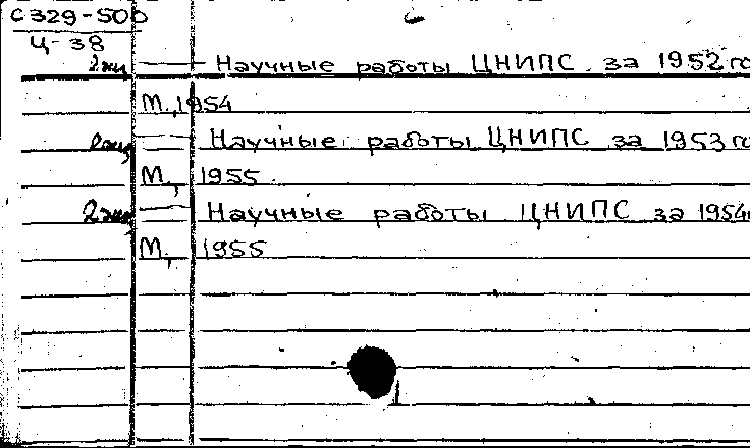 С329-500
Ц-38
2экз — Научные работы ЦНИПС за 1952 го
М., 1954
2экз — Научные работы ЦНИПС за 1953 го
М., 1955
2экз — Научные работы ЦНИПС за 1954
М., 1955